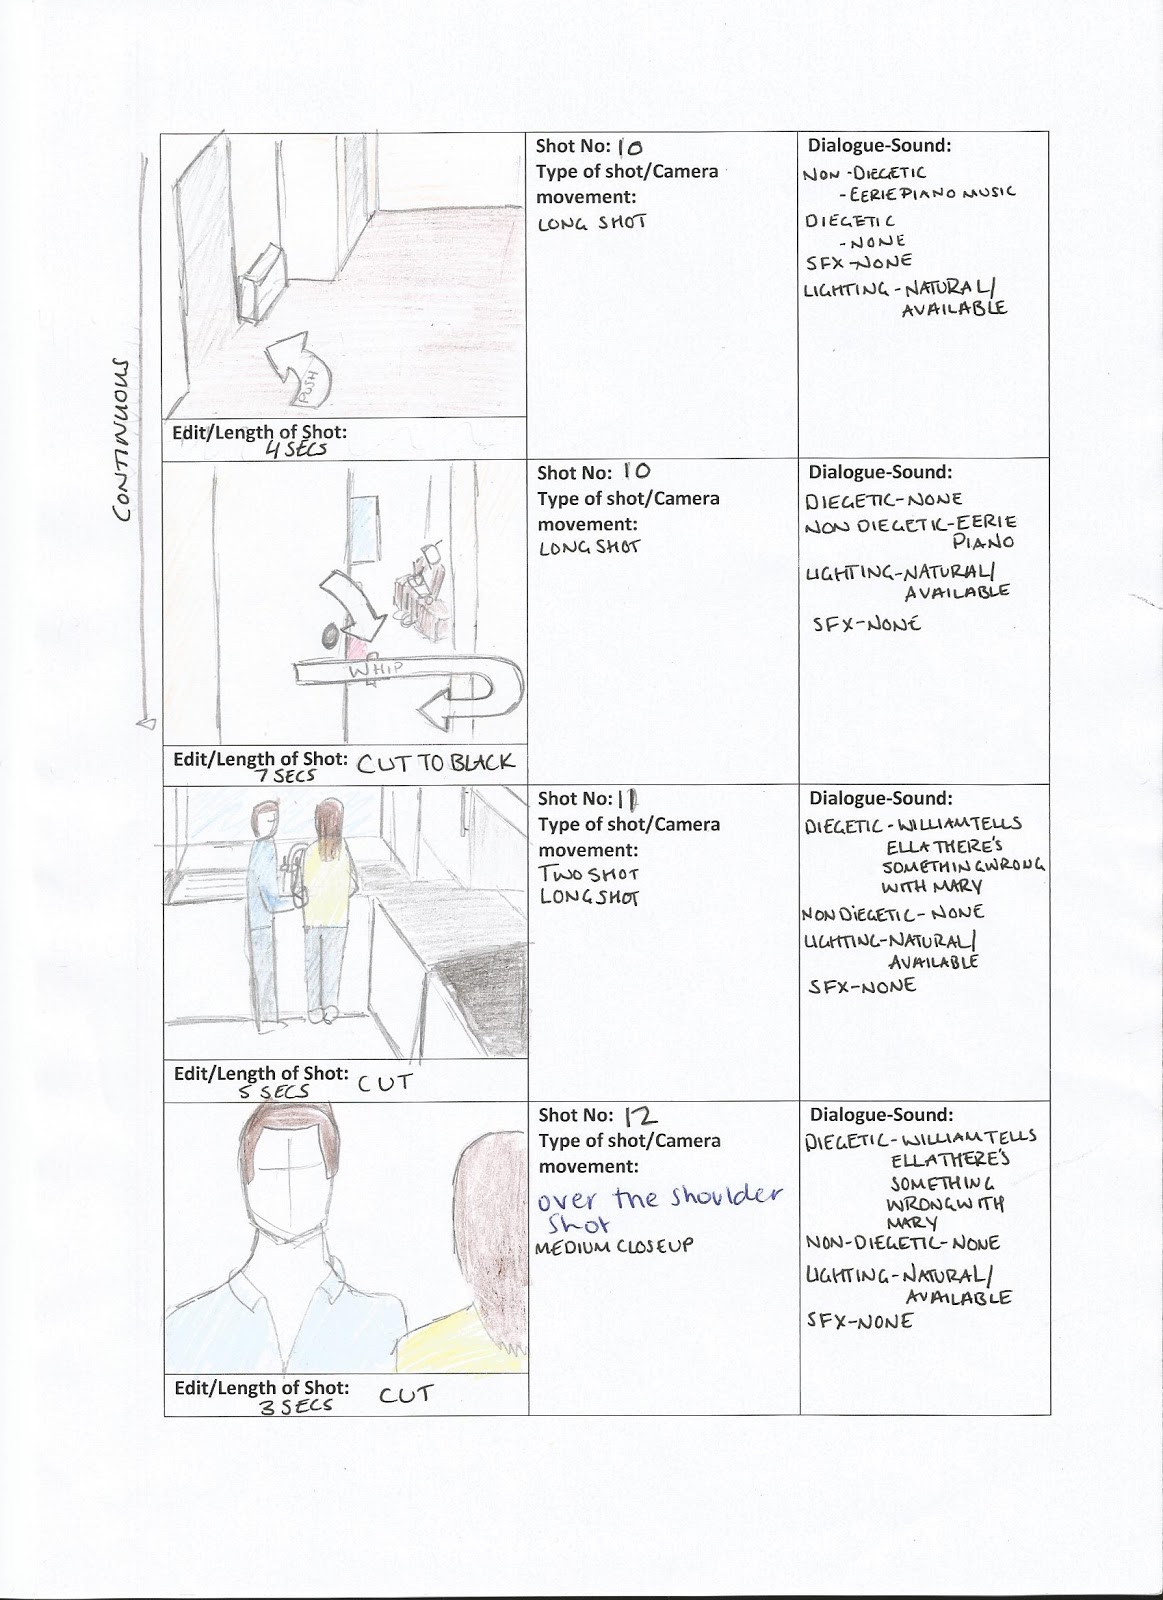 CONTINUOUS
Shot No: 10
Type of shot/Camera
movement:
LONG SHOT
Dialogue-Sound:
NON-DIEGETIC
-EERIE PIANO MUSIC
DIEGETIC
-NONE
SFX-NONE
LIGHTING-NATURAL/
AVAILABLE
PUSH
Edit/Length of Shot:
4 SECS
Shot No: 10
Type of shot/Camera
movement:
LONG SHOT
Dialogue-Sound:
DIEGETIC-NONE
NON DIEGETIC-EERIE
PIANO
LIGHTING-NATURAL/
AVAILABLE
SFX-NONE
WHIP
Edit/Length of Shot: CUT TO BLACK
7 SECS
Shot No: 11
Type of shot/Camera
movement:
TWO SHOT
LONG SHOT
Dialogue-Sound:
DIEGETIC-WILLIAM TELLS
ELLA THERE'S
SOMETHING WRONG
WITH MARY
NON DIEGETIC-NONE
LIGHTING-NATURAL/
AVAILABLE
SFX-NONE
Edit/Length of Shot: CUT
5 SECS
Shot No: 12
Type of shot/Camera
movement:
over the shoulder
shot
MEDIUM CLOSEUP
Dialogue-Sound:
DIEGETIC-WILLIAM TELLS
ELLA THERE'S
SOMETHING
WRONG WITH
MARY
NON-DIEGETIC-NONE
LIGHTING-NATURAL/
AVAILABLE
SFX-NONE
Edit/Length of Shot: CUT
3 SECS